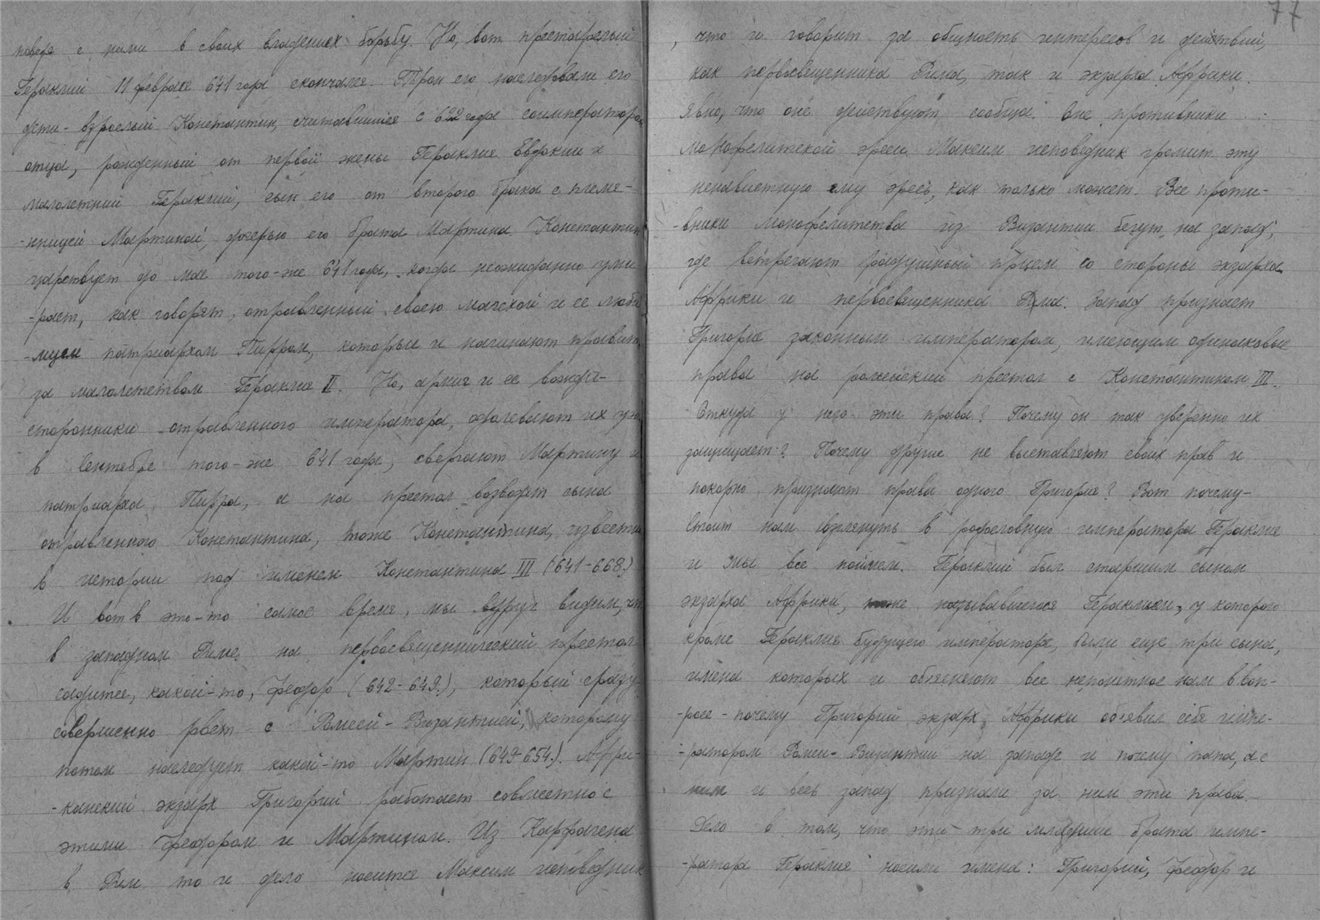 с ними в своих владениях борьбу. Но, вот престарелый
Гераклий 11 февраля 641 года скончался. Трон его наследовали его
дети - взрослый Константин, считавшийся с 622 года соимператором
отца, рожденный от первой жены Гераклия Евдокии и
малолетний Гераклий, сын его от второго брака с племе-
-нницей Мартиной, дочерью его брата Мартина. Константин
царствует до мая того-же 641 года, когда неожиданно уми-
-рает, как говорят, отравленный своею мачехой и ее люби-
-мцем патриархом Пирром, которые и начинают править
за малолетством Гераклия II. Но, армия и ее вожди-
сторонники отравленного императора, одолевают их уже
в Сентябре того-же 641 года, свергают Мартину и
патриарха Пирра, и на престол возводят сына
отравленного Константина, тоже Константина, известн
в истории под именем Константина III (641-668.)
И вот в это-то самое время, мы вдруг видим, что
в западном Риме на первосвященнический престол
садится, какой-то, Феодор (642-649.), который сразу
совершенно рвет с Ромеей-Византией, которому
потом наследует какой-то Мартин (649-654.). Афри-
-канский экзарх Григорий работает совместно с
этими Феодором и Мартином. Из Карфагена
в Рим то и дело носится Максим исповедник
77
, что и говорит за общность интересов и действий,
как первосвященника Рима, так и экзарха Африки.
Явно, что они действуют сообща. Они противники
Монофелитской ереси. Максим исповедник громит эту
ненавистную ему ересь, как только может. Все проти-
-вники монофелитства из Византии бегут на запад,
где встречают радушный прием со стороны экзарха
Африки и первосвященника Рима. Запад признает
Григория законным императором, имеющим одинаковые
права на ромейский престол с Константином III.
Откуда у него эти права? Почему он так уверенно их
защищает? Почему другие не выставляют своих прав и
покорно признают права одного Григория? Вот почему-
Стоит нам взглянуть в родословную императора Гераклия
и мы все поймем. Гераклий был старшим сыном
экзарха Африки, называвшегося Гераклием, у которого
кроме Гераклия будущего императора, были еще три сына,
имена которых и объясняют все непонятное нам в воп-
-росе - почему Григорий экзарх Африки объявил себя импе-
-ратором Ромеи-Византии на западе и почему папа, а с
ним и весь запад признали за ним эти права
Дело в том, что эти три младшие брата импе-
-ратора Гераклия носили имена: Григорий, Феодор и